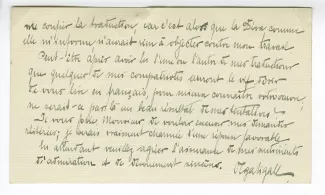 me confier la traduction, car c'est alors que la Diva comme
elle m'informe n'aurait rien à objecter contre mon travail
Peut-être après avoir lu l'un ou l'autre de mes traductions
que quelques de mes compatriotes auront le vif désir
de vous lire en français, pour mieux connaître votre
ne serait-ce pas là un beau résultat de mes tentatives!
Je vous prie Monsieur de vouloir excuser mon
je serais vraiment charmée d'une réponse favorable
En attendant veuillez agréer l'assurance de mes sentiments
d'admiration et de dévouement sincères.
Olga